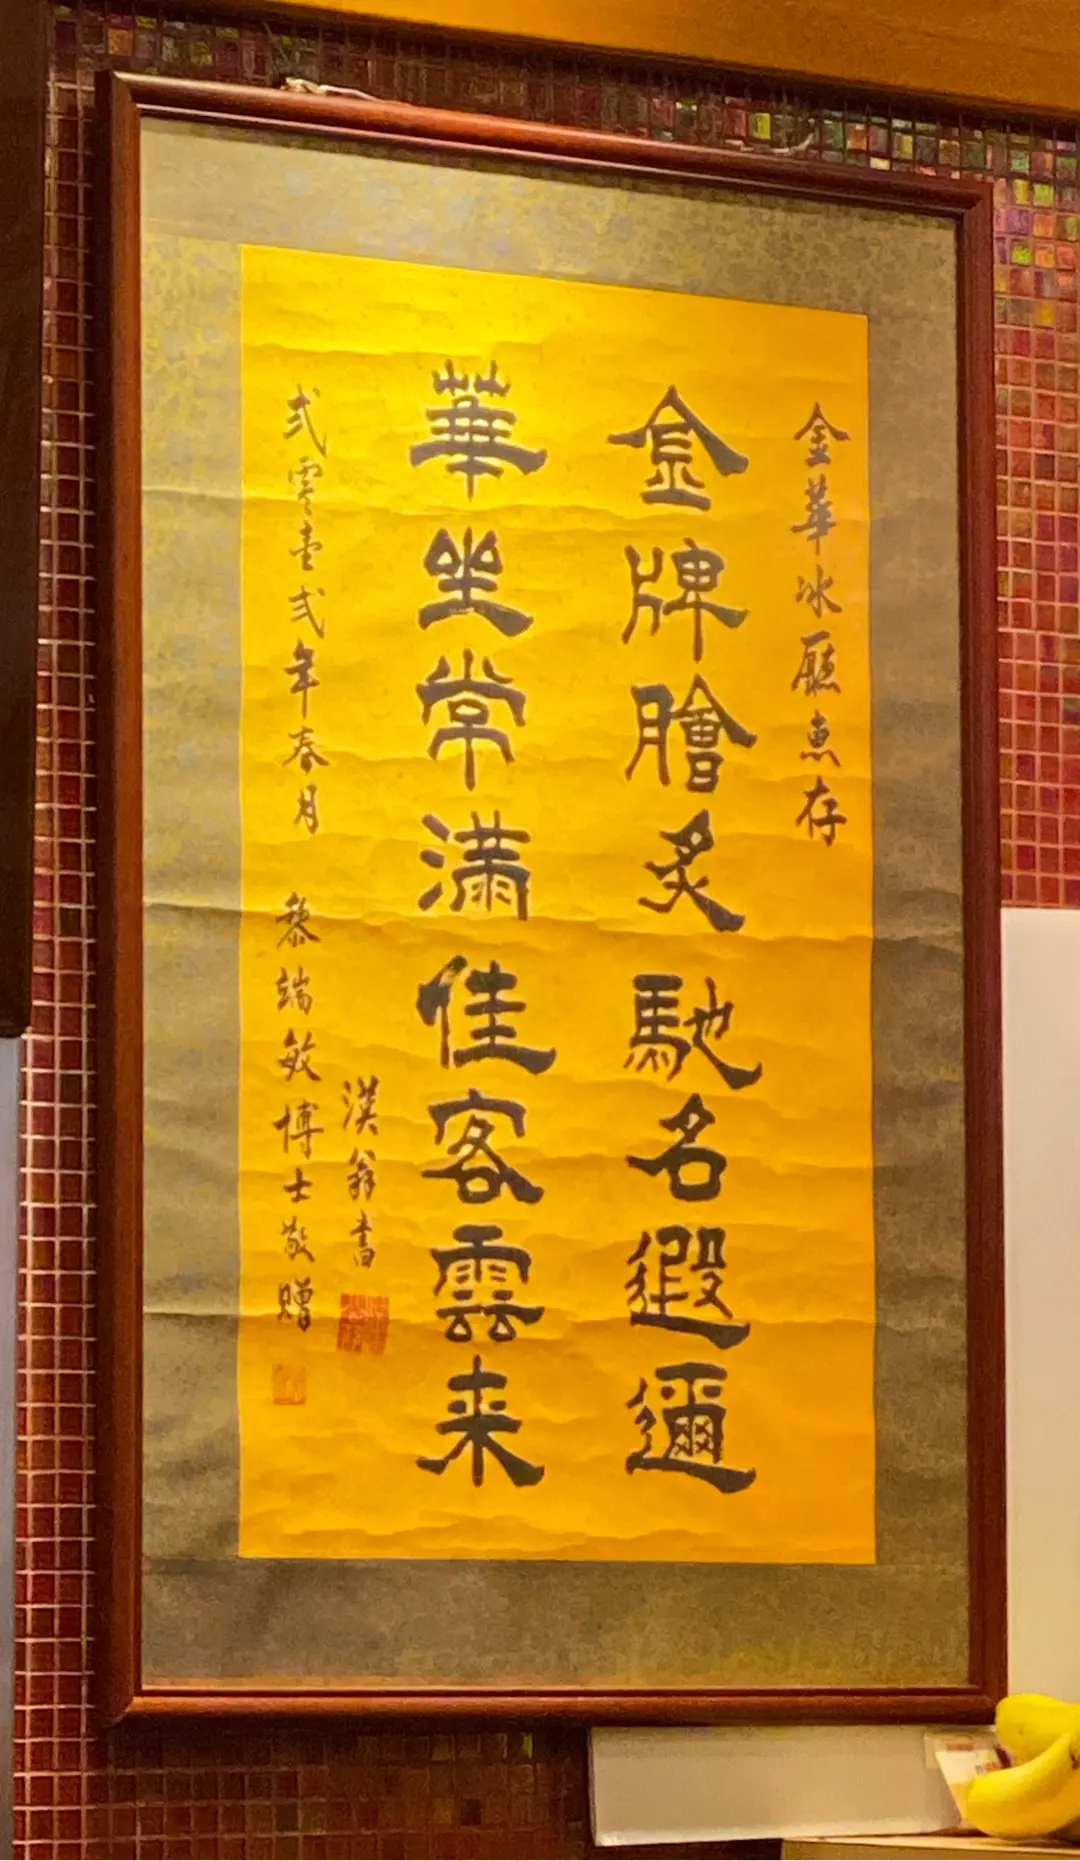 金華冰廳惠存
金牌膾炙馳名遐邇
華坐常滿佳客雲来
漢翁書
弍零壹弍年春月 黎端敏博士敬贈